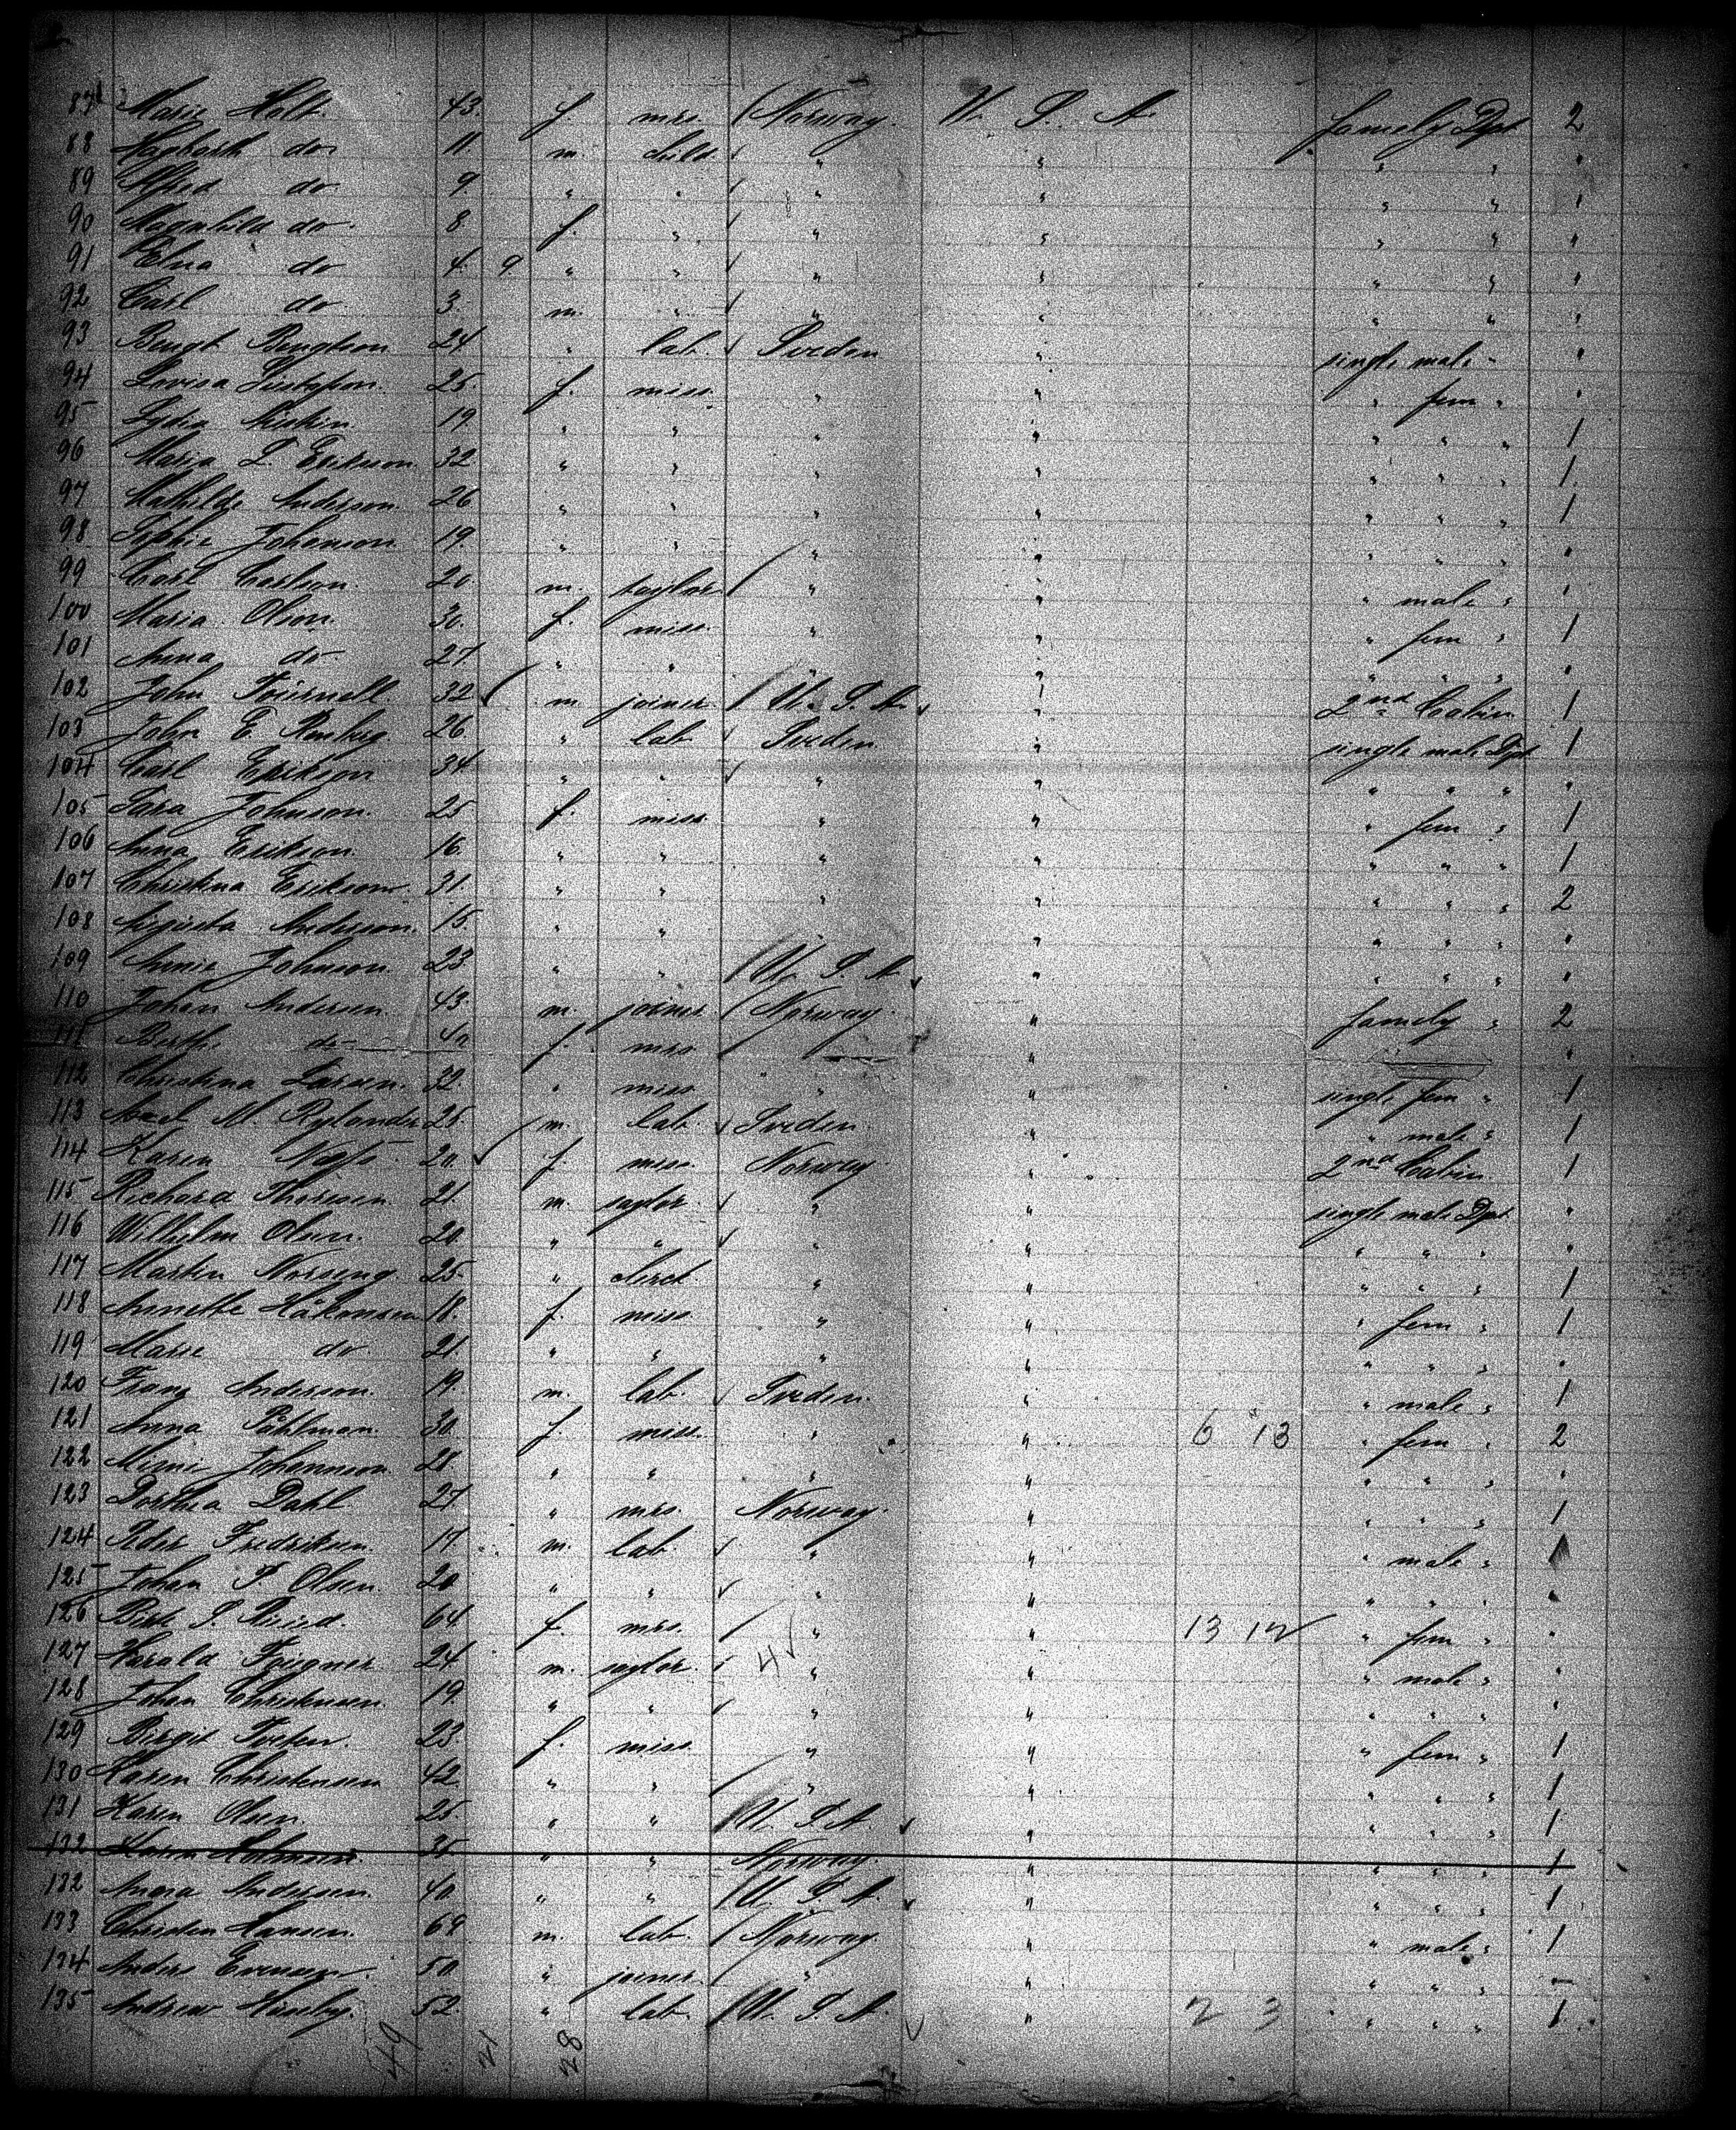 87 Marie Holt. 43. f mrs. Norway. U. S. A. famely Dpt 2
88 do 11 m. child. " " " " "
89 Alfred do 9 " " " " " " 1
90 Magnhild do. 8 f. " " " " " "
91 Elna do 4. 9 " " " " " " "
92 Carl do 3 m. " " " " " "
93 Bengt Bengtson 24. " lab. Sveden " single male " "
94 Lovisa Gustafson. 25. f. miss. " " " fem " "
95 Lydia 19 " " " " " " " 1
96 Maria L. Erikson. 32 " " " " " " " 1.
97 Mathilda Anderson. 26 " " " " " " " 1
98 Sophie Johanson 19. " " " " " " " "
99 Carl Carlson. 20. m. saylor " " " male " "
100 Maria Olson. 30. f. miss. " " " fem " 1
101 Anna do. 27 " " " " " " " "
102 John 32 m joiner U. S. A. " 2nd Cabin 1
103 John E. 26 " lab Sveden. " single male Dpt 1
104 Carl Erikson 34 " " " " " " " "
105 Sara Johnson. 25 f. miss. " " " fem " 1
106 Anna Erikson. 16. " " " " " " " 1
107 Christina Erikson. 31. " " " " " " " 2
108 Augusta Anderson. 15. " " " " " " " "
109 Annie Johnson. 23 " " U. S. A. " " " " "
110 Johan Andersen. 43. m. joiner Norway. " famely " 2
111 do 40 f. mrs " "
112 Christina Larsen. 32. " miss " " single fem " 1
113 Axel M. Rylander 25. m. lab. Sveden. " " male " 1
114 Karen 20. f. miss. Norway. " 2nd Cabin. 1
115 Richard Thorsen. 21 m. saylor. " " single male Dpt. "
116 Wilhelm Olsen. 20 " " " " " " " "
117 Martin 25. " clerck " " " " " 1
118 Annette Håkonsen 18. f. miss. " " " fem " 1
119 Marie do 21 " " " " " " " "
120 Franz Anderson. 19. m. lab. Sveden. " " male " 1
121 Anna Påhlman. 30. f. miss. " " 6 " 13 " fem " 2
122 Mimi Johannson 28. " " " " " " " "
123 Dorthea Dahl 27 " mrs. Norway. " " " " 1
124 Peder Fredriksen. 17. m. lab. " " " male "
125 Johan P. Olsen. 20 " " " " " " "
126 64. f. mrs. " " 13 12 " fem " "
127 Harald 24. m. saylor. " " " male " "
4
128 Johan Christensen. 19. " " " " " " " "
129 Birgit 23. f. miss. " " " fem " 1
130 Karen Christensen 42. " " " " " " " 1
131 Karen Olsen. 25 " " U. S. A. " " " " 1
132 35 " " Norway. " " " " 1
132 Andersen. 40 " " U. S. A. " " " " 1
133 Christen Hansen. 69 m. lab. Norway. " " male " 1
134 Anders 50 " joiner " " " " " –
135 Andrew 52 " lab. U. S. A. " 2 3 " " " 1
49 21 28